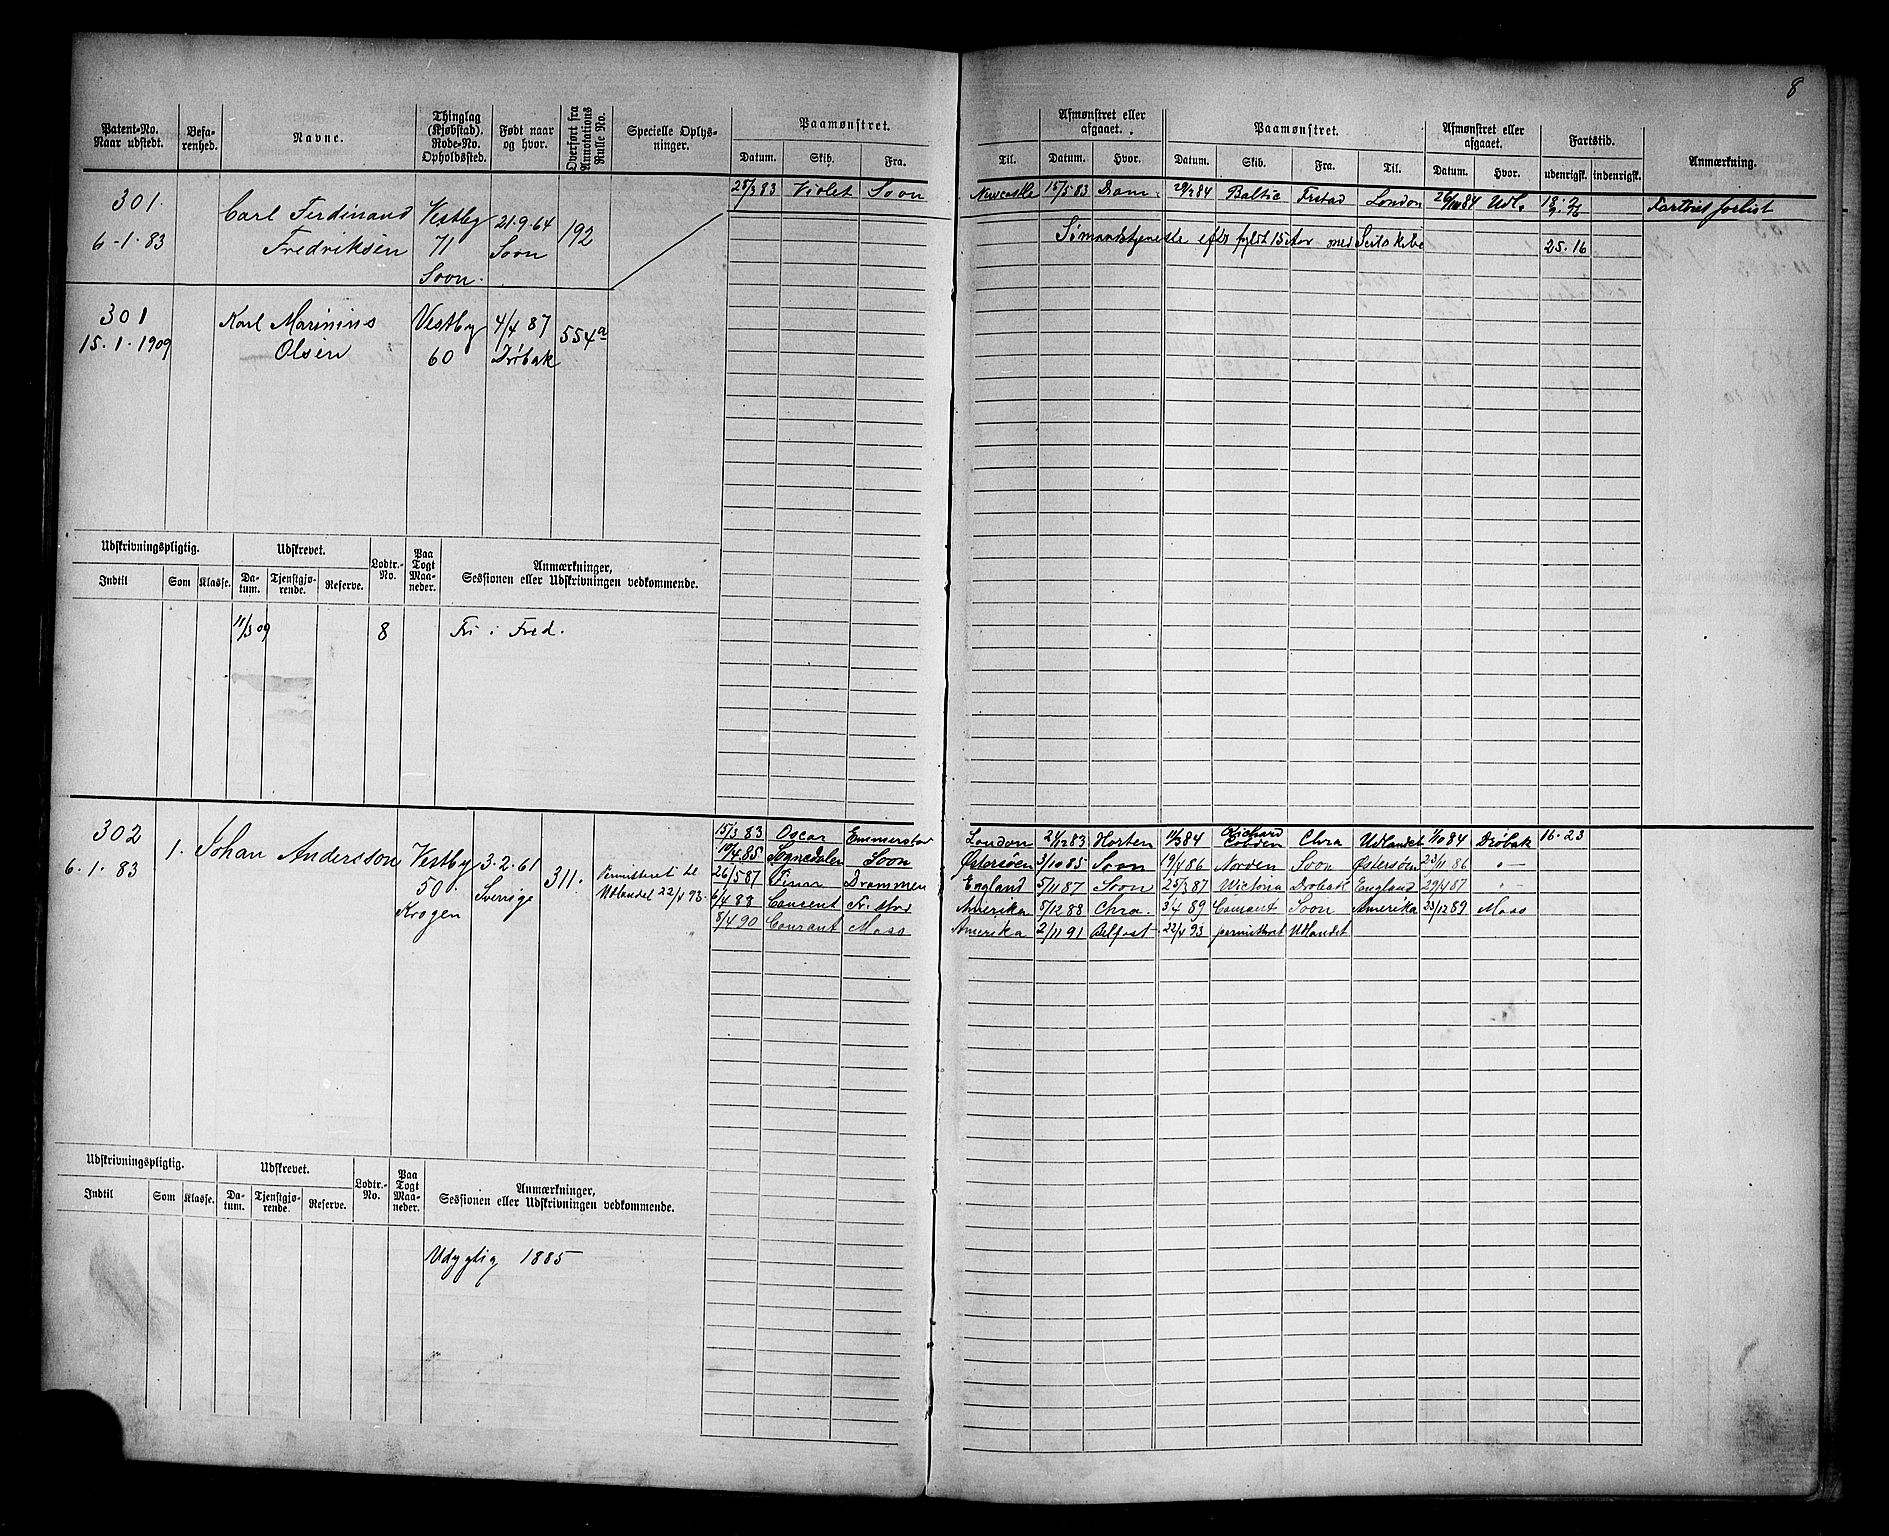 8
Patent-No. Naar udstedt.
Befarenhed.
Navne.
Thinglag (Kjøbstad). Rode-No. Opholdssted.
Født naar og hvor.
Overført fra Annotations Rulle No.
Specielle Oplysninger.
Paamønstret.
Datum. Skib. Fra.
Til.
Afmønstret eller afgaaet.
Datum. Hvor.
Paamønstret.
Datum. Skib. Fra. Til.
Afmønstret eller afgaaet.
Datum. Hvor.
Fartstid.
udenrigsk. indenrigsk.
Anmærkning.
301.
6-1-83
Carl Ferdinand
Fredriksen
Vestby
71
Soon.
21-9-64
Soon
192
25/3 83 Violet Soon Newcastle 15/5 83 Dram. 29/2 84 Baltic Frstad London 26/10 84 Udl.
Sømandstjeneste efter fyldt 15 Aar med 25-16
301
15.1.1909
Karl Marinius
Olsen
Vestby
60
4/4 87
Drøbak
554a
Udskrivningspligtig.
Indtil Som Klasse.
Udskrevet.
Datum. Tjenstgjørende. Reserve.
Lodtr.-No.
Paa Togt Maaneder.
Anmærkninger,
Sessionen eller Udskrivningen vedkommende.
11/3 09 8 Fri i Fred.
302
6-1-83
1.
Johan Andersson
Vestby
50.
Krogen
3-2-61
Sverrige
311.
Permitteret til
Udlandet 22/4 93.
15/3 83 Oscar Emmerstad London 24/12 83 Horten 11/3 84 Richard Cobden Chra Udlandet 1/10 84 Drøbak 16-23
10/4 85 Sognedalen Soon Østersøen 3/10 85 Soon 19/4 86 Norden Soon Østersøen 23/11 86 〃
26/5 87 Einar Drammen England 5/11 87 Soon 25/3 87 Victoria Drøbak England 29/4 87 〃
6/4 88 Consent Fr.stad Amerika 5/12 88 Chra. 3/4 89 Consent Soon Amerika 23/12 89 Moss
8/4 90 Courant Moss Amerika 2/11 91 Belfast 22/4 93 permitteret Udlandet
Udskrivningspligtig.
Indtil Som Klasse.
Udskrevet.
Datum. Tjenstgjørende. Reserve.
Lodtr.-No.
Paa Togt Maaneder.
Anmærkninger,
Sessionen eller Udskrivningen vedkommende.
Udygtig 1885